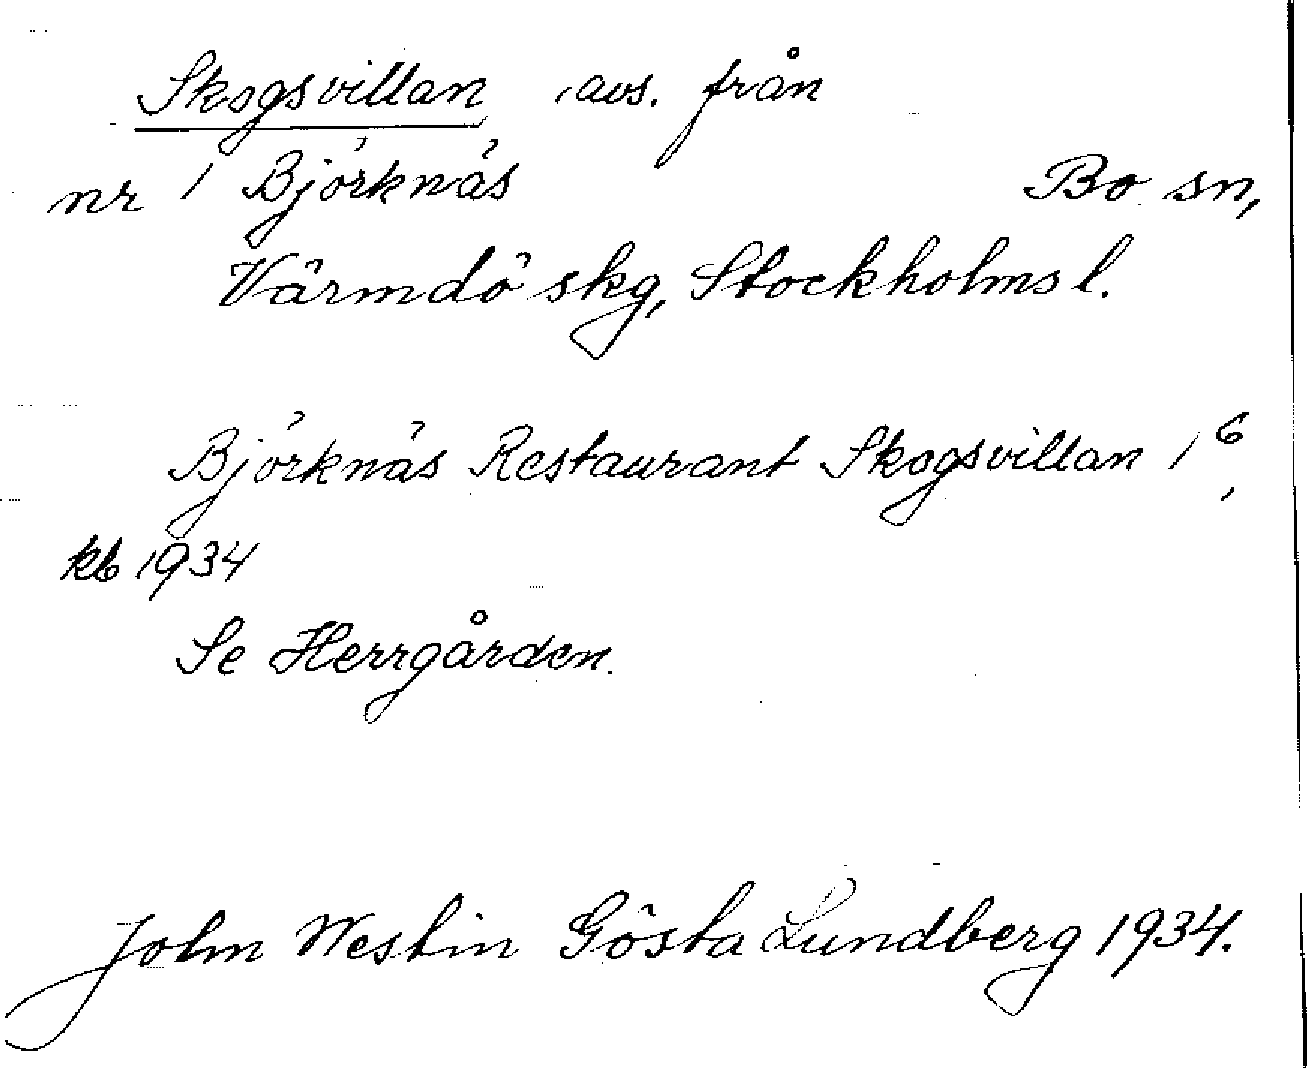 Skogsvillan, avs. från
nr 1 Björknäs Bo sn,
Värmdö skg, Stockholms l.
Björknäs Restaurant Skogsvillan 1⁶,
kb 1934
Se Herrgården.
John Westin Gösta Lundberg 1934.